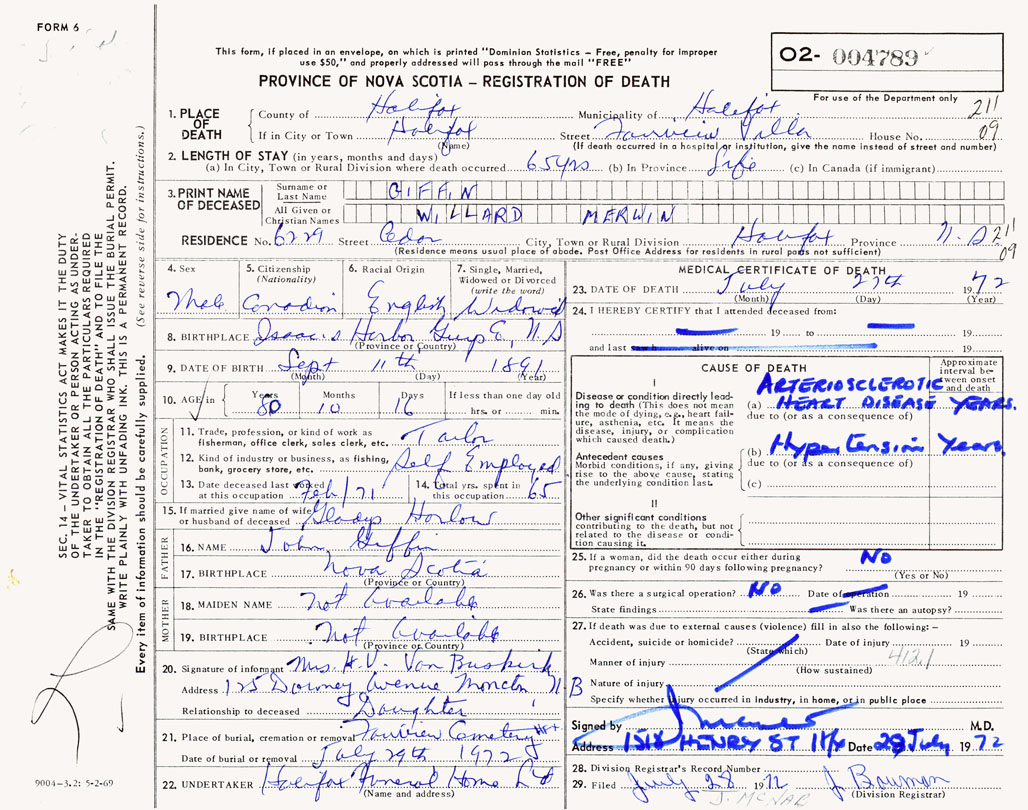 FORM 6
This form, if placed in an envelope, on which is printed "Dominion Statistics – Free, penalty for improper
use $50," and properly addressed will pass through the mail "FREE"
PROVINCE OF NOVA SCOTIA – REGISTRATION OF DEATH
O2- 004789
For use of the Department only
211
09
1. PLACE OF DEATH
County of Halifax Municipality of Halifax
If in City or Town Halifax Street Fairview Villa House No.
(Name) (If death occurred in a hospital or institution, give the name instead of street and number)
2. LENGTH OF STAY (in years, months and days)
(a) In City, Town or Rural Division where death occurred 65 yrs (b) In Province Life (c) In Canada (if immigrant)
3. PRINT NAME OF DECEASED
Surname or Last Name GIFFIN
All Given or Christian Names WILLARD MERWIN
RESIDENCE No. 6229 Street Cedar City, Town or Rural Division Halifax Province N.S 211
09
(Residence means usual place of abode. Post Office Address for residents in rural parts not sufficient)
4. Sex Male
5. Citizenship (Nationality) Canadian
6. Racial Origin English
7. Single, Married, Widowed or Divorced (write the word) Widowed
8. BIRTHPLACE Isaac's Harbor Guys Co, N.S
(Province or Country)
9. DATE OF BIRTH Sept 11th 1891
(Month) (Day) (Year)
10. AGE in Years 80 Months 10 Days 16 If less than one day old hrs. or min.
OCCUPATION
11. Trade, profession, or kind of work as fisherman, office clerk, sales clerk, etc. Tailor
12. Kind of industry or business, as fishing, bank, grocery store, etc. Self Employed
13. Date deceased last worked at this occupation Feb/71 14. Total yrs. spent in this occupation 65
15. If married give name of wife or husband of deceased Gladys Harlow
FATHER
16. NAME John Giffin
17. BIRTHPLACE Nova Scotia
(Province or Country)
MOTHER
18. MAIDEN NAME Not Available
19. BIRTHPLACE Not Available
(Province or Country)
20. Signature of informant Mrs. H.V. Van Buskirk
Address 125 Downey Avenue Moncton N B
Relationship to deceased Daughter
21. Place of burial, cremation or removal Fairview Cemetery Hfx
Date of burial or removal July 29th 1972
22. UNDERTAKER Halifax Funeral Home Ltd
(Name and address)
MEDICAL CERTIFICATE OF DEATH
23. DATE OF DEATH July 27th 1972
(Month) (Day) (Year)
24. I HEREBY CERTIFY that I attended deceased from:
19 to 19
and last saw h alive on 19
CAUSE OF DEATH
Approximate interval between onset and death
I
Disease or condition directly leading to death (This does not mean the mode of dying, e.g., heart failure, asthenia, etc. It means the disease, injury, or complication which caused death.)
(a) ARTERIOSCLEROTIC HEART DISEASE YEARS.
due to (or as a consequence of)
Antecedent causes
Morbid condition, if any, giving rise to the above cause, stating the underlying condition last.
(b) Hypertension Years
due to (or as a consequence of)
(c)
II
Other significant conditions contributing to the death, but not related to the disease or condition causing it.
25. If a woman, did the death occur either during pregnancy or within 90 days following pregnancy? NO
(Yes or No)
26. Was there a surgical operation? NO Date of operation 19
State findings Was there an autopsy?
27. If death was due to external causes (violence) fill in also the following: –
Accident, suicide or homicide? Date of injury 19
(State which)
4121
Manner of injury
(How sustained)
Nature of injury
Specify whether injury occurred in industry, in home, or in public place
Signed by M.D.
Address 1518 HENRY ST Hfx Date 28 July 1972
28. Division Registrar's Record Number
29. Filed July 28 1972 J Bauman
(Division Registrar)
J. MCNAB
SEC. 14 – VITAL STATISTICS ACT MAKES IT THE DUTY
OF THE UNDERTAKER OR PERSON ACTING AS UNDER-
TAKER TO OBTAIN ALL THE PARTICULARS REQUIRED
IN THE "REGISTRATION OF DEATH" AND TO FILE THE
SAME WITH THE DIVISION REGISTRAR WHO SHALL ISSUE THE BURIAL PERMIT.
WRITE PLAINLY WITH UNFADING INK. THIS IS A PERMANENT RECORD.
Every item of information should be carefully supplied. (See reverse side for instructions.)
9004-3.2: 5-2-69